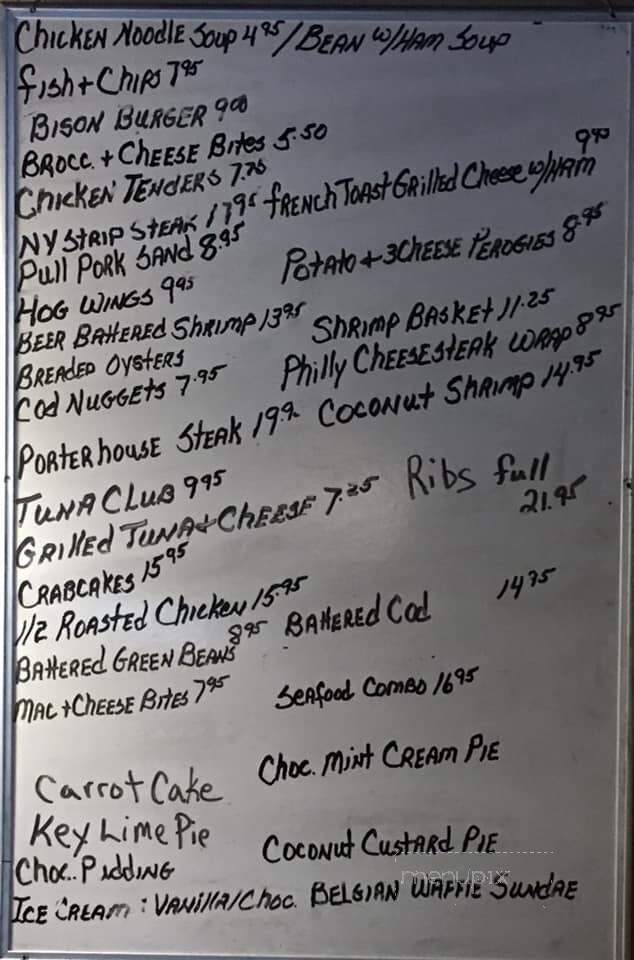 Chicken Noodle Soup 4.95/Bean w/Ham Soup
fish + Chips 7.95
Bison Burger 9.00
Brocc. + Cheese Bites 5.50
Chicken Tenders 7.75
9.90
NY Strip Steak 17.95 french Toast Grilled Cheese w/Ham
Pull Pork Sand 8.95
Potato + 3 Cheese Perogies 8.95
Hog Wings 9.95
Beer Battered Shrimp 13.95 Shrimp Basket 11.25
Breaded Oysters
Cod Nuggets 7.95 Philly Cheesesteak Wrap 8.95
Porterhouse Steak Coconut Shrimp 14.95
Tuna Club 9.95
Grilled Tuna + Cheese 7.25 Ribs full
21.95
Crabcakes 15.95
1/2 Roasted Chicken 15.95
Battered Green Beans 8.95 Battered Cod 14.75
Mac + Cheese Bites 7.95 Seafood Combo 16.95
Choc. Mint Cream Pie
Carrot Cake
Key Lime Pie
Coconut Custard Pie
Choc.. Pudding
menupix
Ice Cream : Vanilla/Choc. Belgian Waffle Sundae